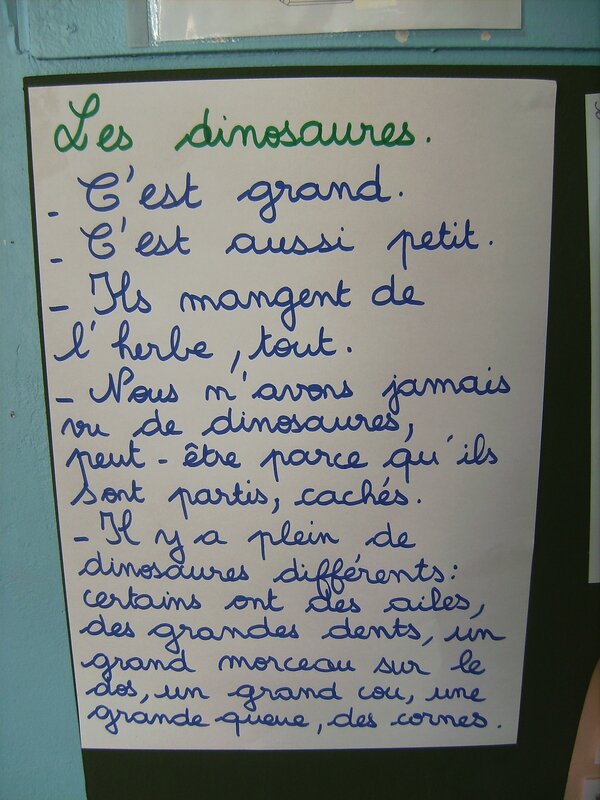 Les dinosaures.
- C'est grand.
- C'est aussi petit.
- Ils mangent de
l'herbe, tout.
- Nous n'avons jamais
vu de dinosaures,
peut-être parce qu'ils
sont partis, cachés.
- Il y a plein de
dinosaures différents:
certains ont des ailes,
des grandes dents, un
grand morceau sur le
dos, un grand cou, une
grande queue, des cornes.